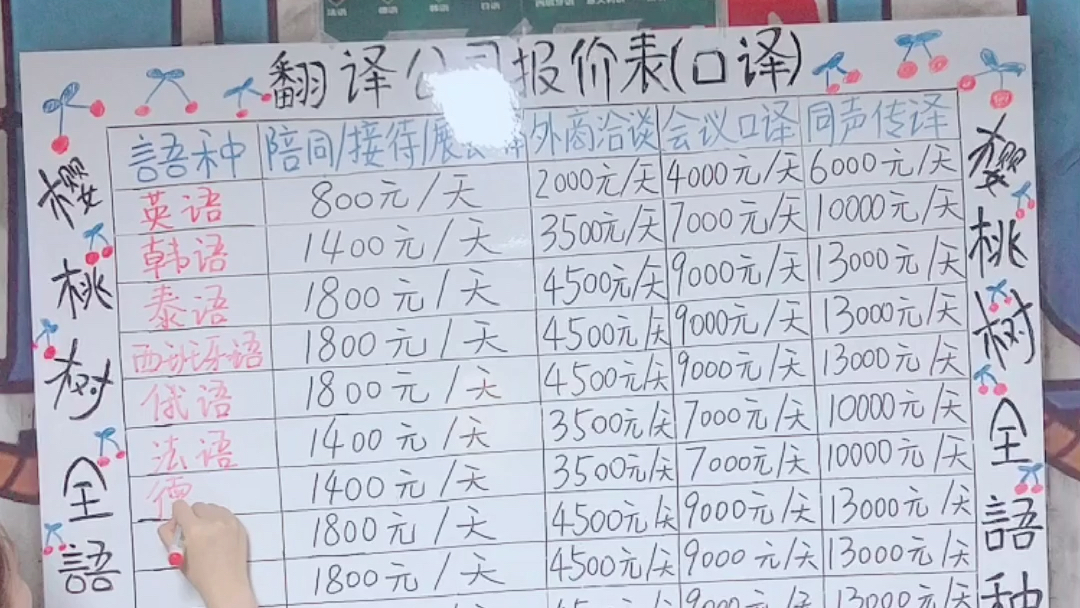 翻译公司报价表(口译)
語种 陪同/接待/展会 译 外商洽谈 会议口译 同声传译
英语 800元/天 2000元/天 4000元/天 6000元/天
韩语 1400元/天 3500元/天 7000元/天 10000元/天
泰语 1800元/天 4500元/天 9000元/天 13000元/天
西班牙语 1800元/天 4500元/天 9000元/天 13000元/天
俄语 1800元/天 4500元/天 9000元/天 13000元/天
法语 1400元/天 3500元/天 7000元/天 10000元/天
德 1400元/天 3500元/天 7000元/天 10000元/天
1800元/天 4500元/天 9000元/天 13000元/天
1800元/天 4500元/天 9000元/天 13000元/天
9000元/天 13000元/天
樱桃树全語
樱桃树全語种